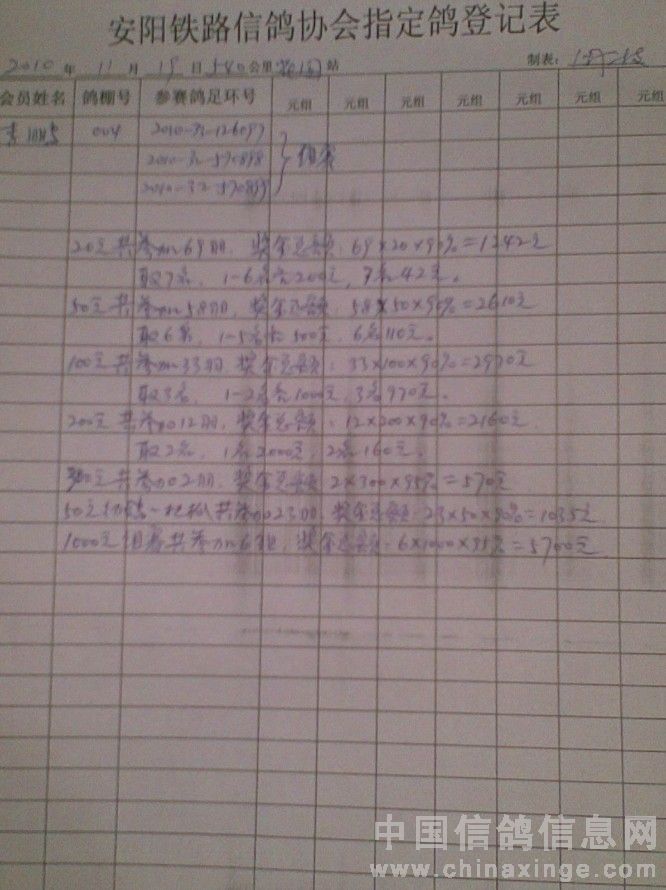 安阳铁路信鸽协会指定鸽登记表
2010 年 11 月 19 日 540公里 站 制表:
会员姓名 鸽棚号 参赛鸽足环号 元组 元组 元组 元组 元组 元组 元组
004 2010-32-126097
2010-32-590898 组赛
2010-32-590899
20元共参加69羽,奖金总额:69×20×90%=1242元
取7名,1-6名各200元,7名42元。
50元共参加58羽,奖金总额:58×50×90%=2610元
取6名,1-5名各500元,6名110元。
100元共参加33羽,奖金总额:33×100×90%=2970元
取3名,1-2名各1000元,3名970元。
200元共参加12羽,奖金总额:12×200×90%=2160元
取2名,1名2000元,2名160元。
300元共参加2羽,奖金总额 2×300×95%=570元
50元 一 共参加23羽,奖金总额:23×50×90%=1035元
1000元组赛共参加6组,奖金总额:6×1000×95%=5700元
中国信鸽信息网
www.chinaxinge.com